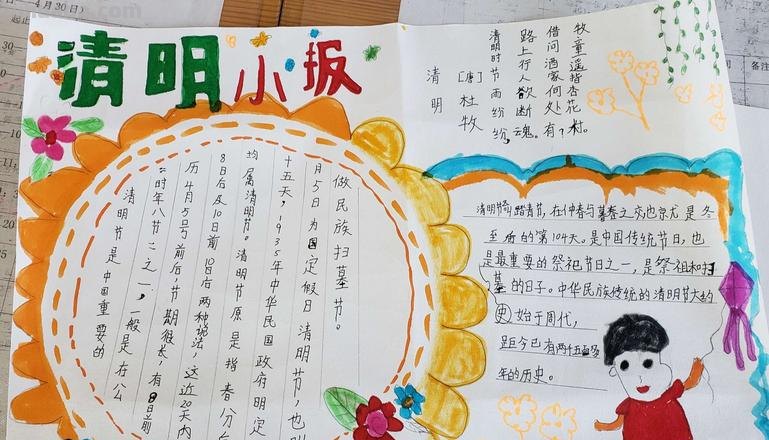 清明小报
清明
[唐]杜牧
清明时节雨纷纷,
路上行人欲断魂。
借问酒家何处有?
牧童遥指杏花村。
清明节是中国重要的
“时年八节”之一,一般是在公
历4月5号前后,节期很长,有8日前
8日后及10日前10日后两种说法,这近20天内
均属清明节。清明节原是指春分
十五天,1935年中华民国政府明定
月5日为国定假日清明节,也
做民族扫墓节。
清明节 踏青节,在仲春与暮春之交也 是冬
至后的第104天。是中国传统节日,也
是最重要的祭祀节日之一,是祭祖和扫
墓的日子。中华民族传统的清明节大约
始于周代,
距今已有两千五百多
年的历史。
4月30日)
备注